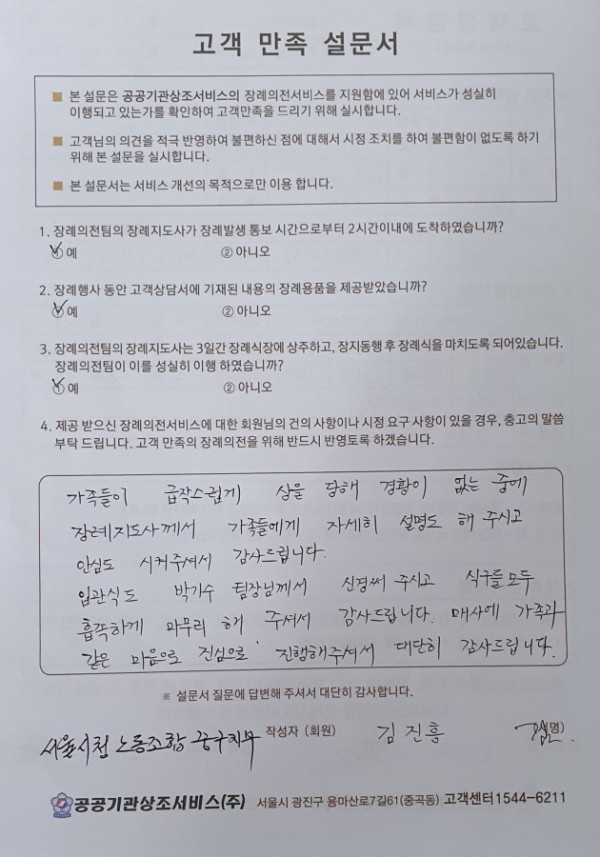 고객 만족 설문서
■ 본 설문은 공공기관상조서비스의 장례의전서비스를 지원함에 있어 서비스가 성실히
이행되고 있는가를 확인하여 고객만족을 드리기 위해 실시합니다.
■ 고객님의 의견을 적극 반영하여 불편하신 점에 대해서 시정 조치를 하여 불편함이 없도록 하기
위해 본 설문을 실시합니다.
■ 본 설문서는 서비스 개선의 목적으로만 이용 합니다.
1. 장례의전팀의 장례지도사가 장례발생 통보 시간으로부터 2시간이내에 도착하였습니까?
① 예 ② 아니오
2. 장례행사 동안 고객상담서에 기재된 내용의 장례용품을 제공받았습니까?
① 예 ② 아니오
3. 장례의전팀의 장례지도사는 3일간 장례식장에 상주하고, 장지동행 후 장례식을 마치도록 되어있습니다.
장례의전팀이 이를 성실히 이행 하였습니까?
① 예 ② 아니오
4. 제공 받으신 장례의전서비스에 대한 회원님의 건의 사항이나 시정 요구 사항이 있을 경우, 충고의 말씀
부탁 드립니다. 고객 만족의 장례의전을 위해 반드시 반영토록 하겠습니다.
가족들이 급작스럽게 상을 당해 경황이 없는 중에
장례지도사께서 가족들에게 자세히 설명도 해 주시고
안심도 시켜주셔서 감사드립니다.
입관식도 박가수 팀장님께서 신경써 주시고 식구들 모두
흡족하게 마무리 해 주셔서 감사드립니다. 매사에 가족과
같은 마음으로 진심으로 진행해주셔서 대단히 감사드립니다.
※ 설문서 질문에 답변해 주셔서 대단히 감사합니다.
서울시청 노동조합 중구지부 작성자 (회원) 김진흥 명)
공공기관상조서비스(주) 서울시 광진구 용마산로7길61(중곡동) 고객센터1544-6211